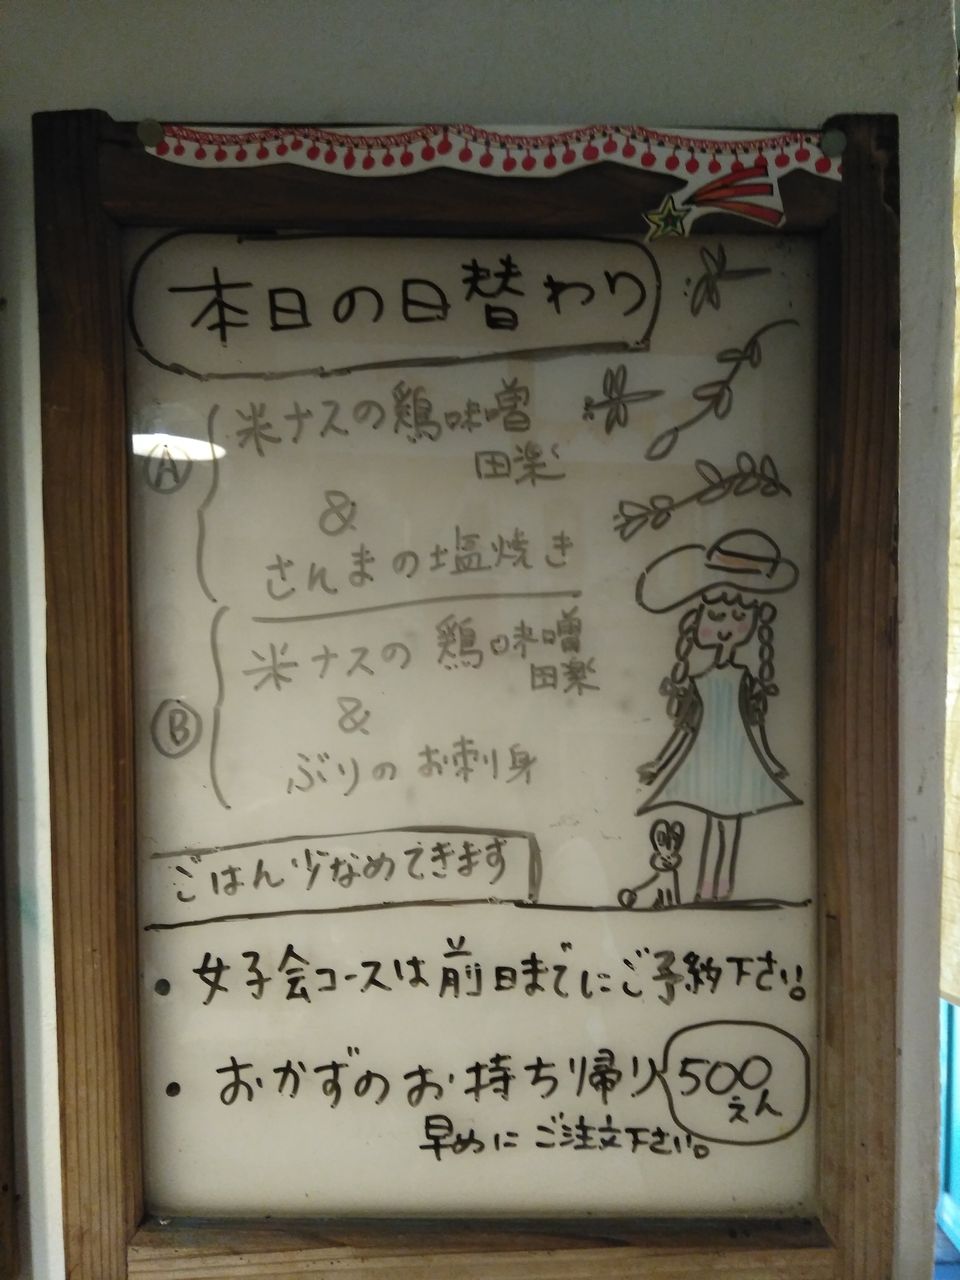 本日の日替わり
Ⓐ
米ナスの鶏味噌
田楽
&
さんまの塩焼き
Ⓑ
米ナスの鶏味噌
田楽
&
ぶりのお刺身
ごはん少なめできます
・女子会コースは前日までにご予約下さい。
・おかずのお持ち帰り 500
えん
早めにご注文下さい。